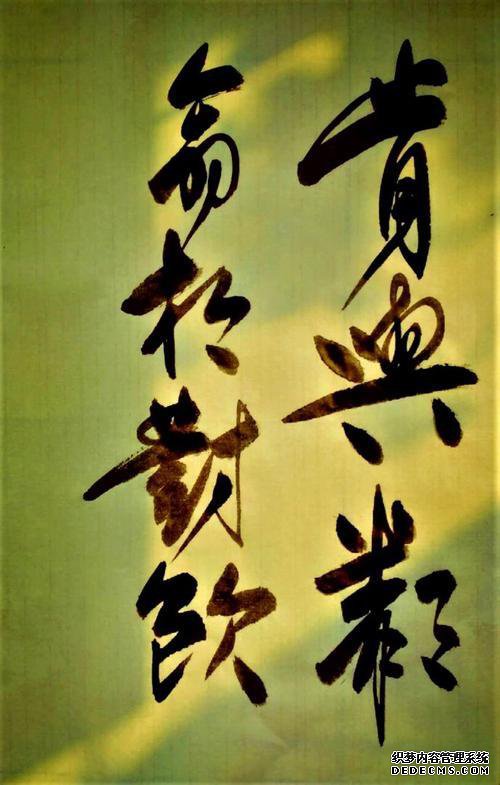 肯與鄰
翁相對飲
织梦内容管理系统
DEDECMS.COM